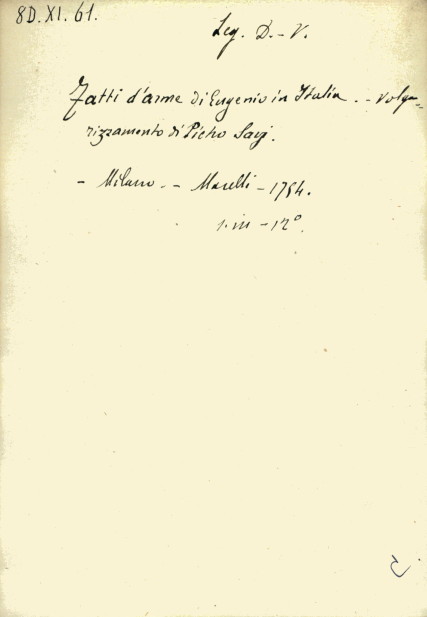 8D.XI.61.
Leg. D. - V.
Fatti d'arme di Eugenio in Italia. - Volga-
rizzamento di Pietro Savj.
- Milano. - Marelli - 1754.
1. in - 12°.